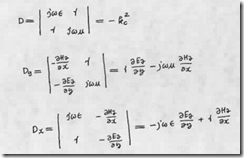 D = | jωε γ ; γ jωμ | = -k_c²
D_y = | -∂Hz/∂x γ ; -∂Ez/∂y jωμ | = γ ∂Ez/∂y - jωμ ∂Hz/∂x
D_x = | jωε -∂Hz/∂x ; γ -∂Ez/∂y | = -jωε ∂Ez/∂y + γ ∂Hz/∂x